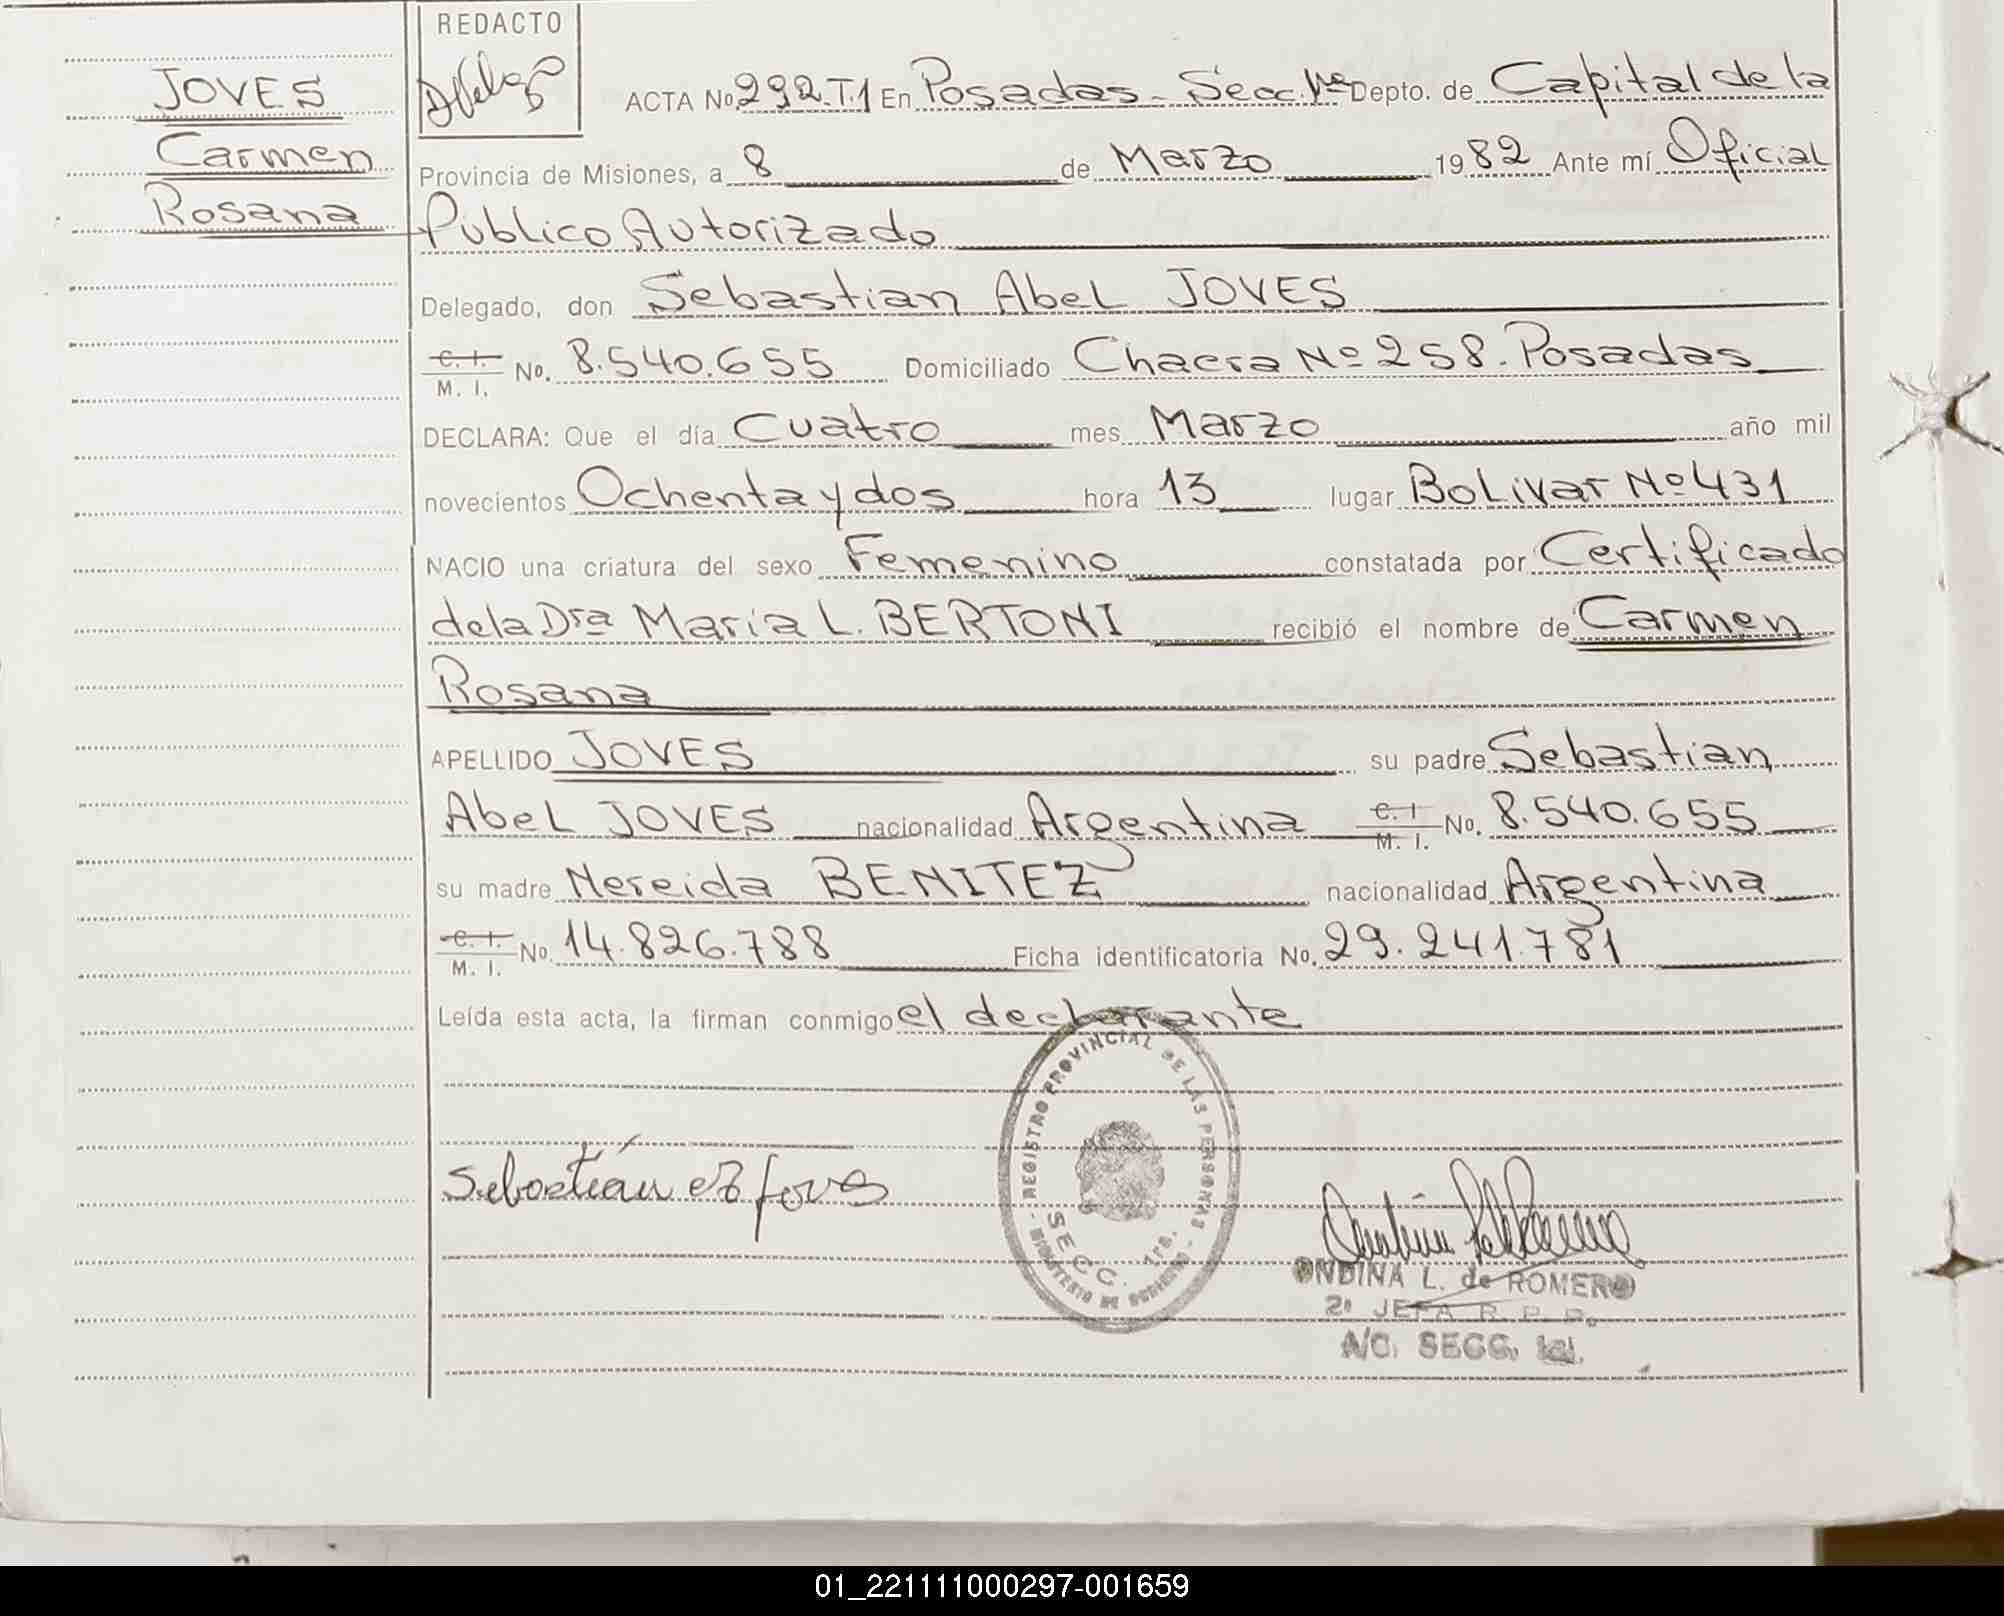 REDACTO
JOVES
Carmen
Rosana
ACTA No 292.T.1 En Posadas - Secc. 1ra Depto. de Capital de la
Provincia de Misiones, a 8 de Marzo 1982 Ante mí Oficial
Público Autorizado
Delegado, don Sebastian Abel JOVES
C. I. M. I. No. 8.540.655 Domiciliado Chacra Nº 258. Posadas
DECLARA: Que el día Cuatro mes Marzo año mil
novecientos Ochenta y dos hora 13 lugar Bolivar Nº 431
NACIO una criatura del sexo Femenino constatada por Certificado
de la Dra María L. BERTONI recibió el nombre de Carmen
Rosana
APELLIDO JOVES su padre Sebastian
Abel JOVES nacionalidad Argentina C. I. M. I. No. 8.540.655
su madre Nereida BENITEZ nacionalidad Argentina
C. I. M. I. No. 14.826.788 Ficha identificatoria No. 29.241.781
Leída esta acta, la firman conmigo el declarante
REGISTRO PROVINCIAL DE LAS PERSONAS
SECC. 1ra.
MINISTERIO DE GOBIERNO
ONDINA L. de ROMERO
2º JEFA R. P. P.
A/C. SECC. 1a.
01_221111000297-001659